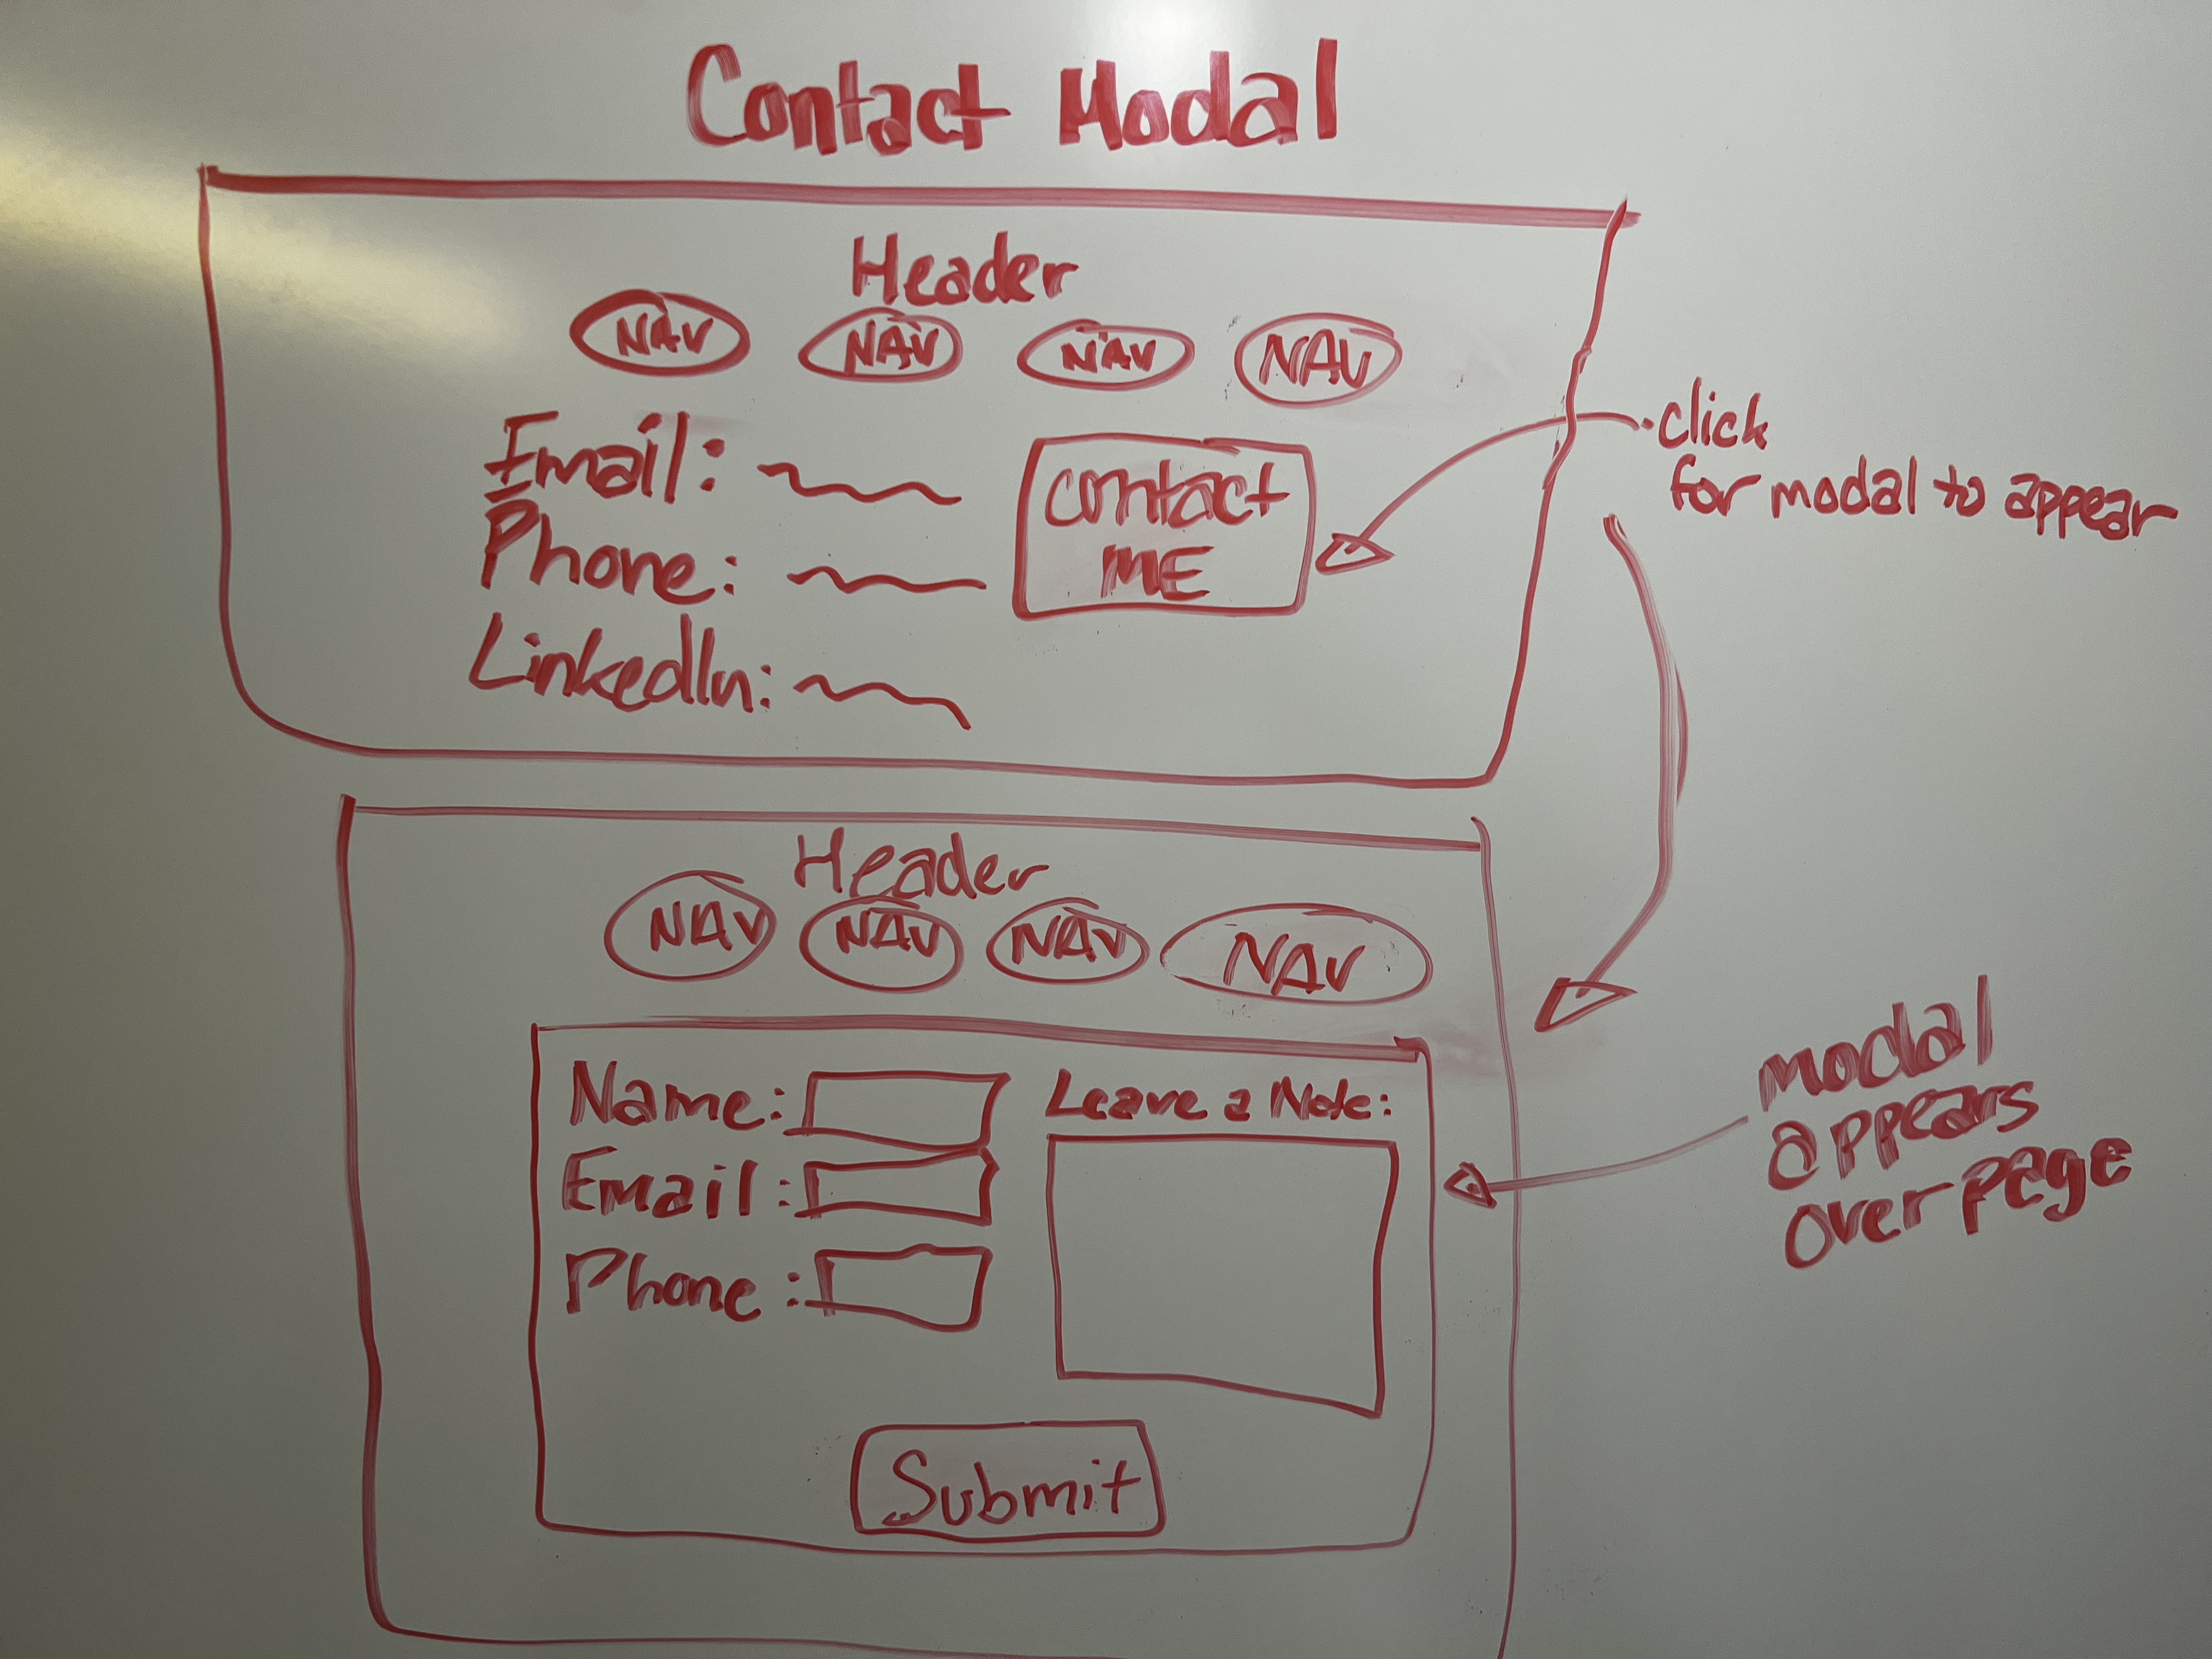 Contact Modal
Header
NAV NAV NAV NAV
Email:
Phone:
LinkedIn:
contact
ME
click
for modal to appear
Header
NAV NAV NAV NAV
Name:
Email:
Phone:
Leave a Note:
Submit
modal
appears
over page